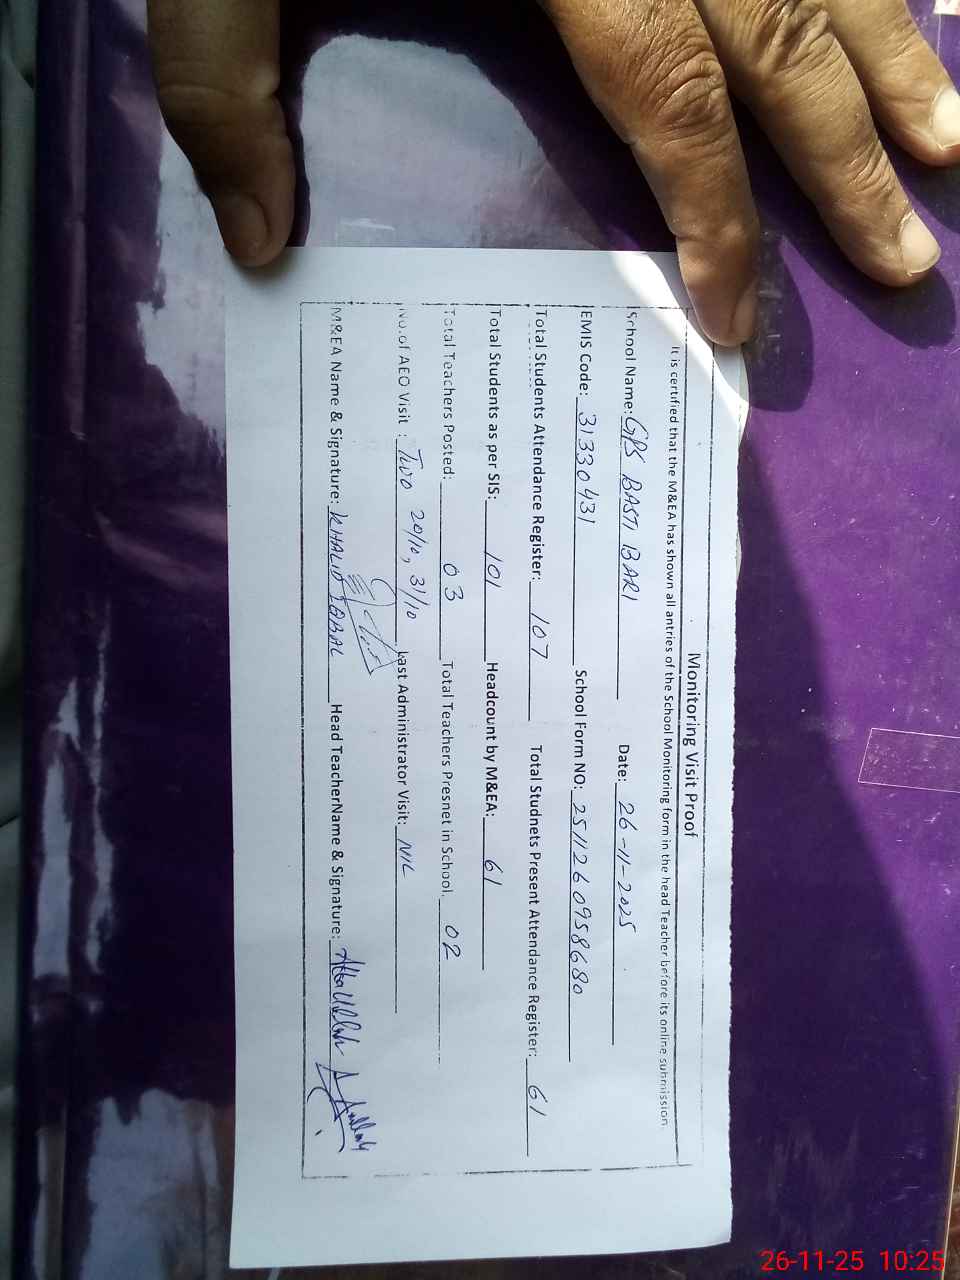 Monitoring Visit Proof
It is certified that the M&EA has shown all antries of the School Monitoring form in the head Teacher before its online submission
School Name: GPS BASTI BARI Date: 26-11-2025
EMIS Code: 31330431 School Form NO: 2511260958680
Total Students Attendance Register: 107 Total Studnets Present Attendance Register: 61
Total Students as per SIS: 101 Headcount by M&EA: 61
Total Teachers Posted: 03 Total Teachers Presnet in School. 02
No.of AEO Visit : Two 20/10, 31/10 Last Administrator Visit: NIL
M&EA Name & Signature: KHALID IQBAL Head TeacherName & Signature: Atta Ullah
26-11-25 10:25